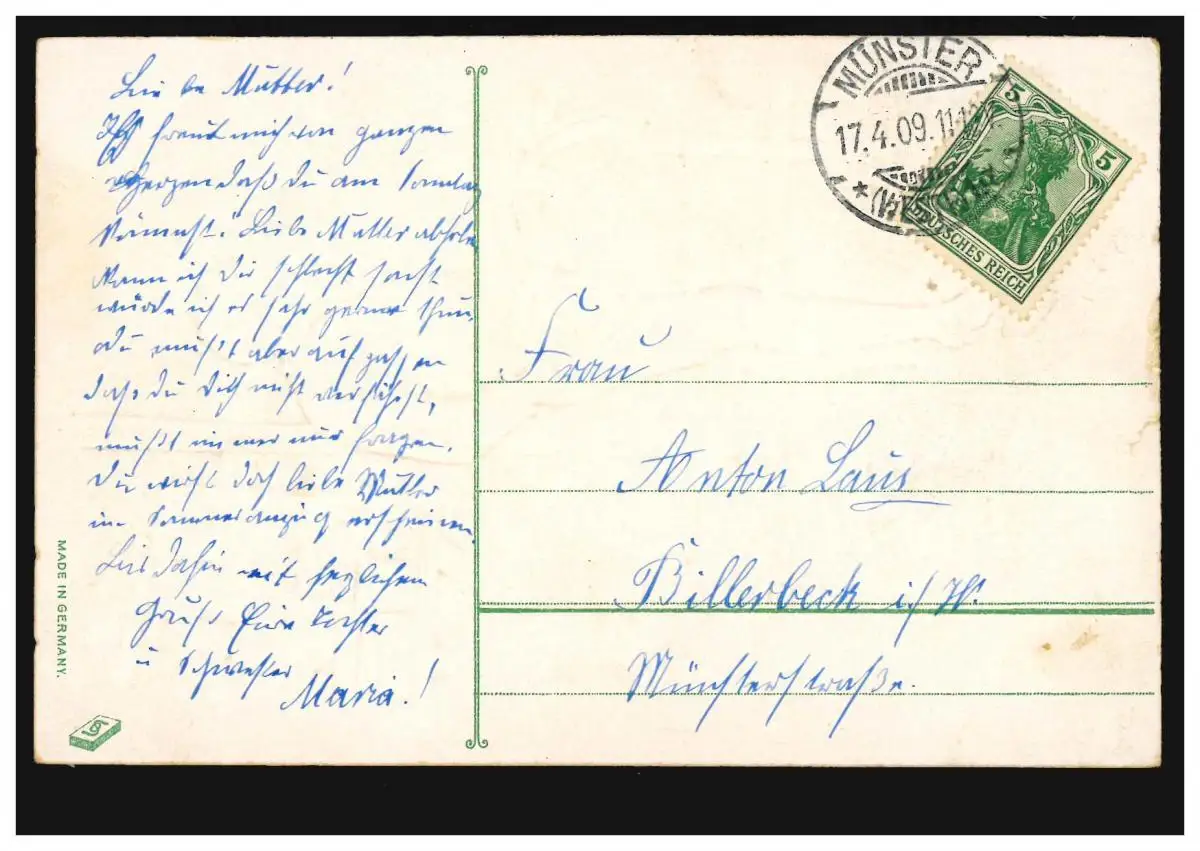 Liebe Mutter!
Es freut mich von ganzen
Herzen daß du am Sonntag
kömmst. Liebe Mutter abholen
kann ich dir schlecht sonst
würde ich es sehr gerne thun,
du mußt aber aufpassen
daß du dich nicht verfährst,
mußt immer nur fragen.
Du wirst doch liebe Mutter
im Sommeranzug erscheinen
Bis dahin mit herzlichem
Gruß Eure Tochter
u Schwester
Maria!
MADE IN GERMANY.
MÜNSTER
17.4.09.11-12
* (WESTF.)
5
5
DEUTSCHES REICH
Frau
Anton Laus
Billerbeck i/W.
Münsterstraße.